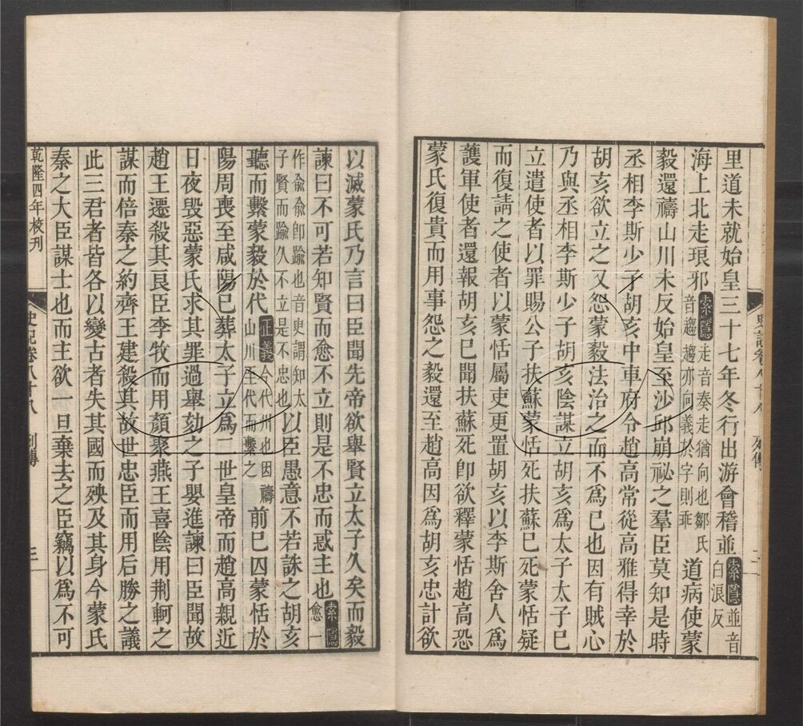 里道未就始皇三十七年冬行出游會稽並索隱並音白浪反
海上北走琅邪索隱走音奏走猶向也鄒氏音趨趨亦向義於字則乖道病使蒙
毅還禱山川未反始皇至沙邱崩祕之羣臣莫知是時
丞相李斯少子胡亥中車府令趙高常從高雅得幸於
胡亥欲立之又怨蒙毅法治之而不爲已也因有賊心
乃與丞相李斯少子胡亥陰謀立胡亥爲太子太子已
立遣使者以罪賜公子扶蘇蒙恬死扶蘇已死蒙恬疑
而復請之使者以蒙恬屬吏更置胡亥以李斯舍人爲
護軍使者還報胡亥已聞扶蘇死卽欲釋蒙恬趙高恐
蒙氏復貴而用事怨之毅還至趙高因爲胡亥忠計欲
以滅蒙氏乃言曰臣聞先帝欲舉賢立太子久矣而毅
諫曰不可若知賢而兪不立則是不忠而惑主也索隱兪一
作兪兪卽踰也音臾謂知太子賢而踰久不立是不忠也以臣愚意不若誅之胡亥
聽而繫蒙毅於代正義今代州也因禱山川至代而繫之前已囚蒙恬於
陽周喪至咸陽已葬太子立爲二世皇帝而趙高親近
日夜毀惡蒙氏求其罪過舉劾之子嬰進諫曰臣聞故
趙王遷殺其良臣李牧而用顏聚燕王喜陰用荆軻之
謀而倍秦之約齊王建殺其故世忠臣而用后勝之議
此三君者皆各以變古者失其國而殃及其身今蒙氏
秦之大臣謀士也而主欲一旦棄去之臣竊以爲不可
乾隆四年校刊
史記卷八十八
列傳
三